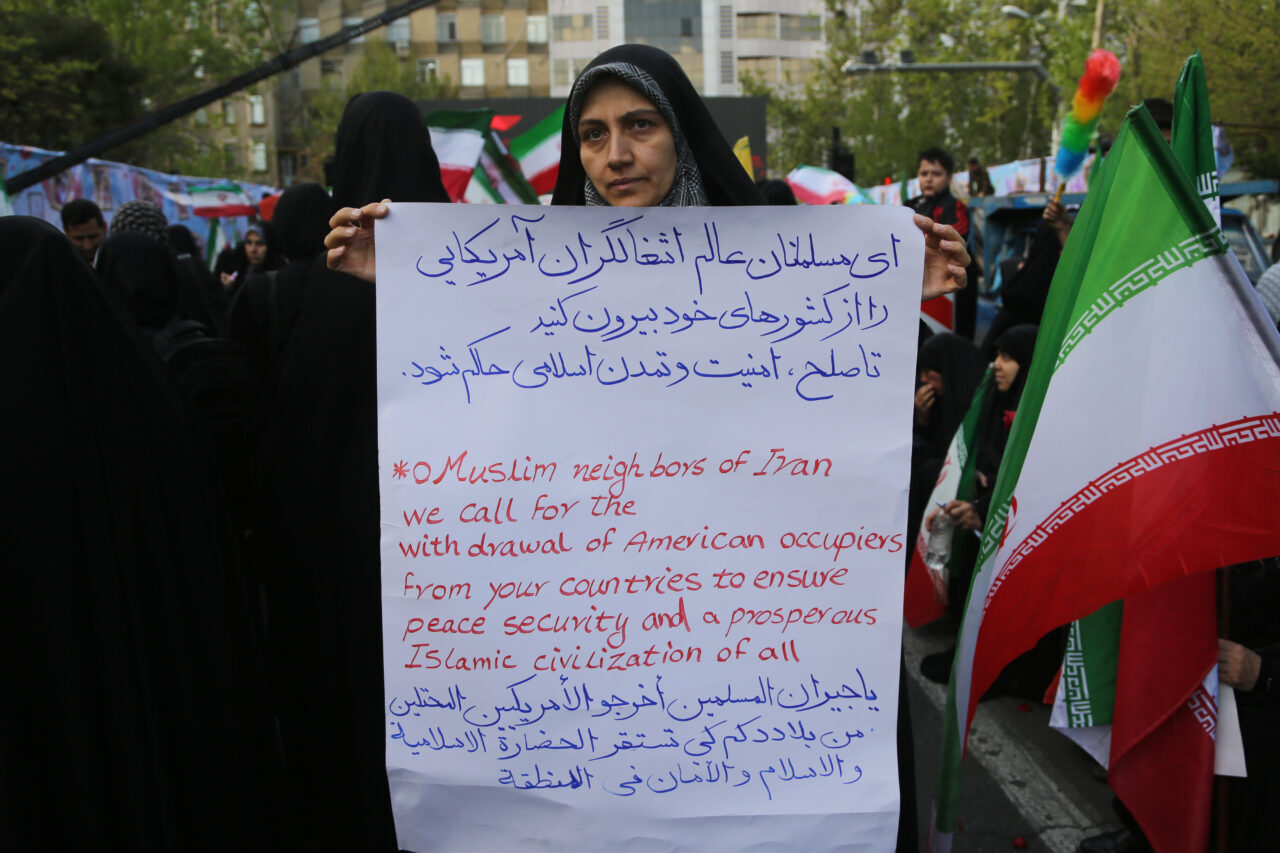 ای مسلمانان عالم اشغالگران آمریکایی
را از کشورهای خود بیرون کنید
تا صلح، امنیت و تمدن اسلامی حاکم شود.
*o Muslim neighbors of Iran
we call for the
with drawal of American occupiers
from your countries to ensure
peace security and a prosperous
Islamic civilization of all
یا جیران المسلمین أخرجو الأمریکیین المحتلین
من بلادکم کی تستقر الحضارة الاسلامیة
والاسلام والأمان فی المنطقة